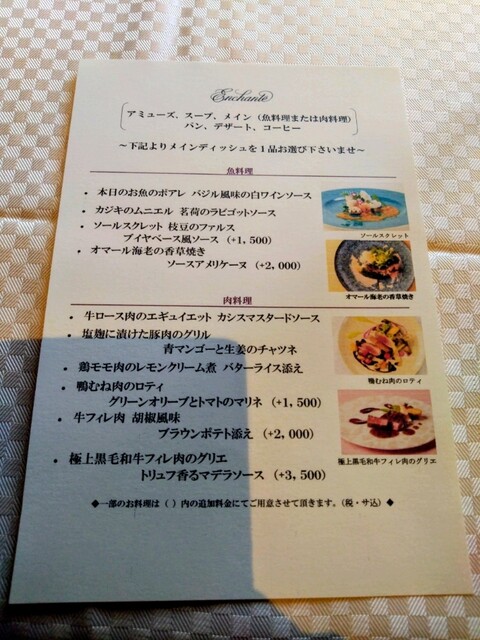 Enchanté
アミューズ、スープ、メイン（魚料理または肉料理）
パン、デザート、コーヒー
～下記よりメインディッシュを１品お選び下さいませ～
魚料理
・ 本日のお魚のポアレ バジル風味の白ワインソース
・ カジキのムニエル 茗荷のラビゴットソース
・ ソールスクレット 枝豆のファルス
ブイヤベース風ソース（+1, 500）
・ オマール海老の香草焼き
ソースアメリケーヌ（+2, 000）
ソールスクレット
オマール海老の香草焼き
肉料理
・ 牛ロース肉のエギュイエット カシスマスタードソース
・ 塩麹に漬けた豚肉のグリル
青マンゴーと生姜のチャツネ
・ 鶏モモ肉のレモンクリーム煮 バターライス添え
・ 鴨むね肉のロティ
グリーンオリーブとトマトのマリネ（+1, 500）
・ 牛フィレ肉 胡椒風味
ブラウンポテト添え（+2, 000）
・ 極上黒毛和牛フィレ肉のグリエ
トリュフ香るマデラソース（+3, 500）
鴨むね肉のロティ
極上黒毛和牛フィレ肉のグリエ
◆一部のお料理は（ ）内の追加料金にてご用意させて頂きます。（税・サ込）◆